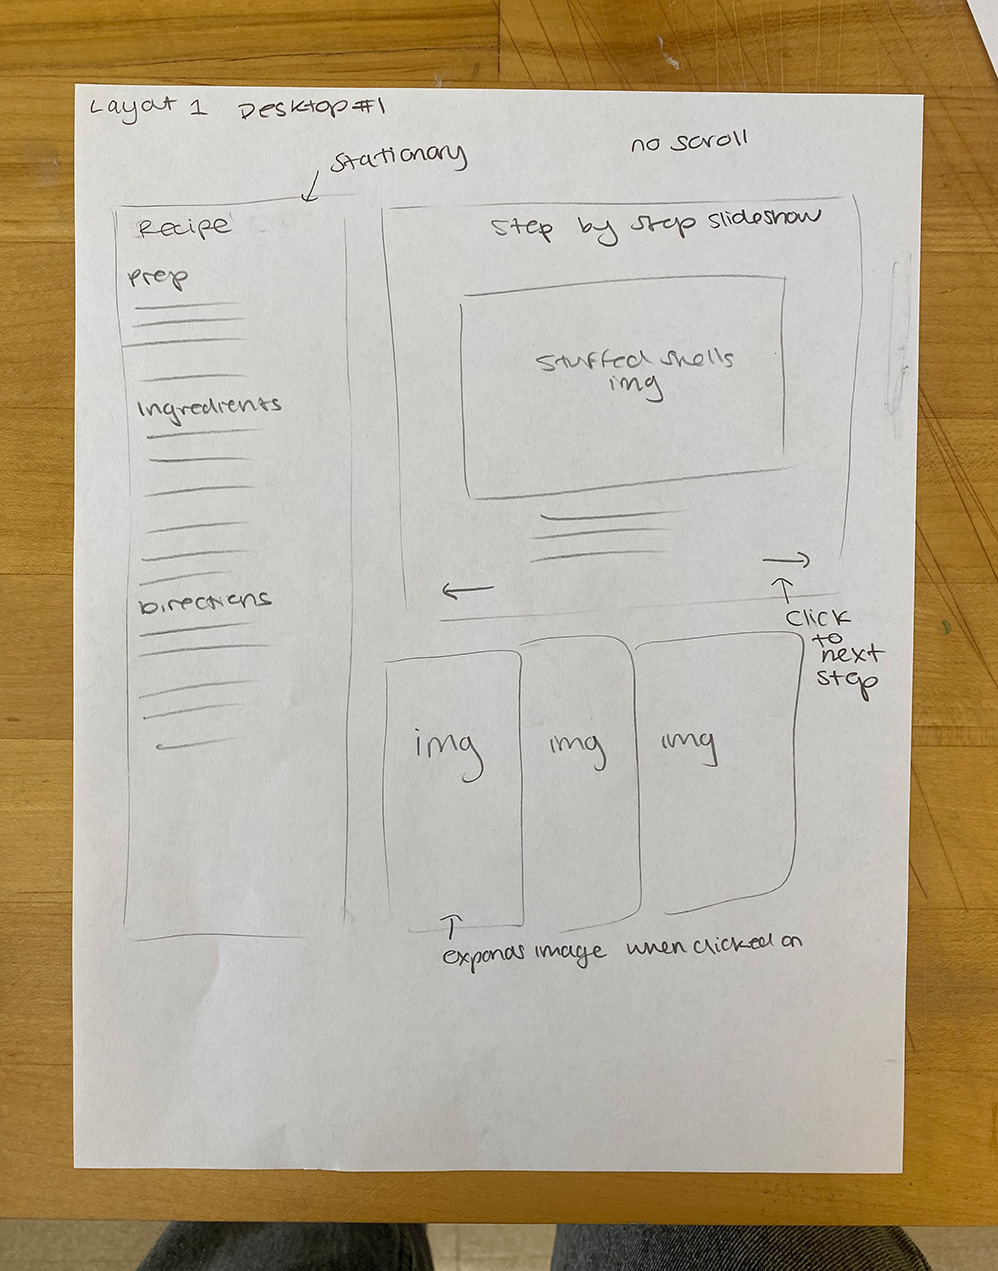 Layout 1 Desktop #1
stationary
no scroll
Recipe
Prep
Ingredients
Directions
Step by step slideshow
Stuffed shells
img
click
to
next
step
img
img
img
expands image when clicked on